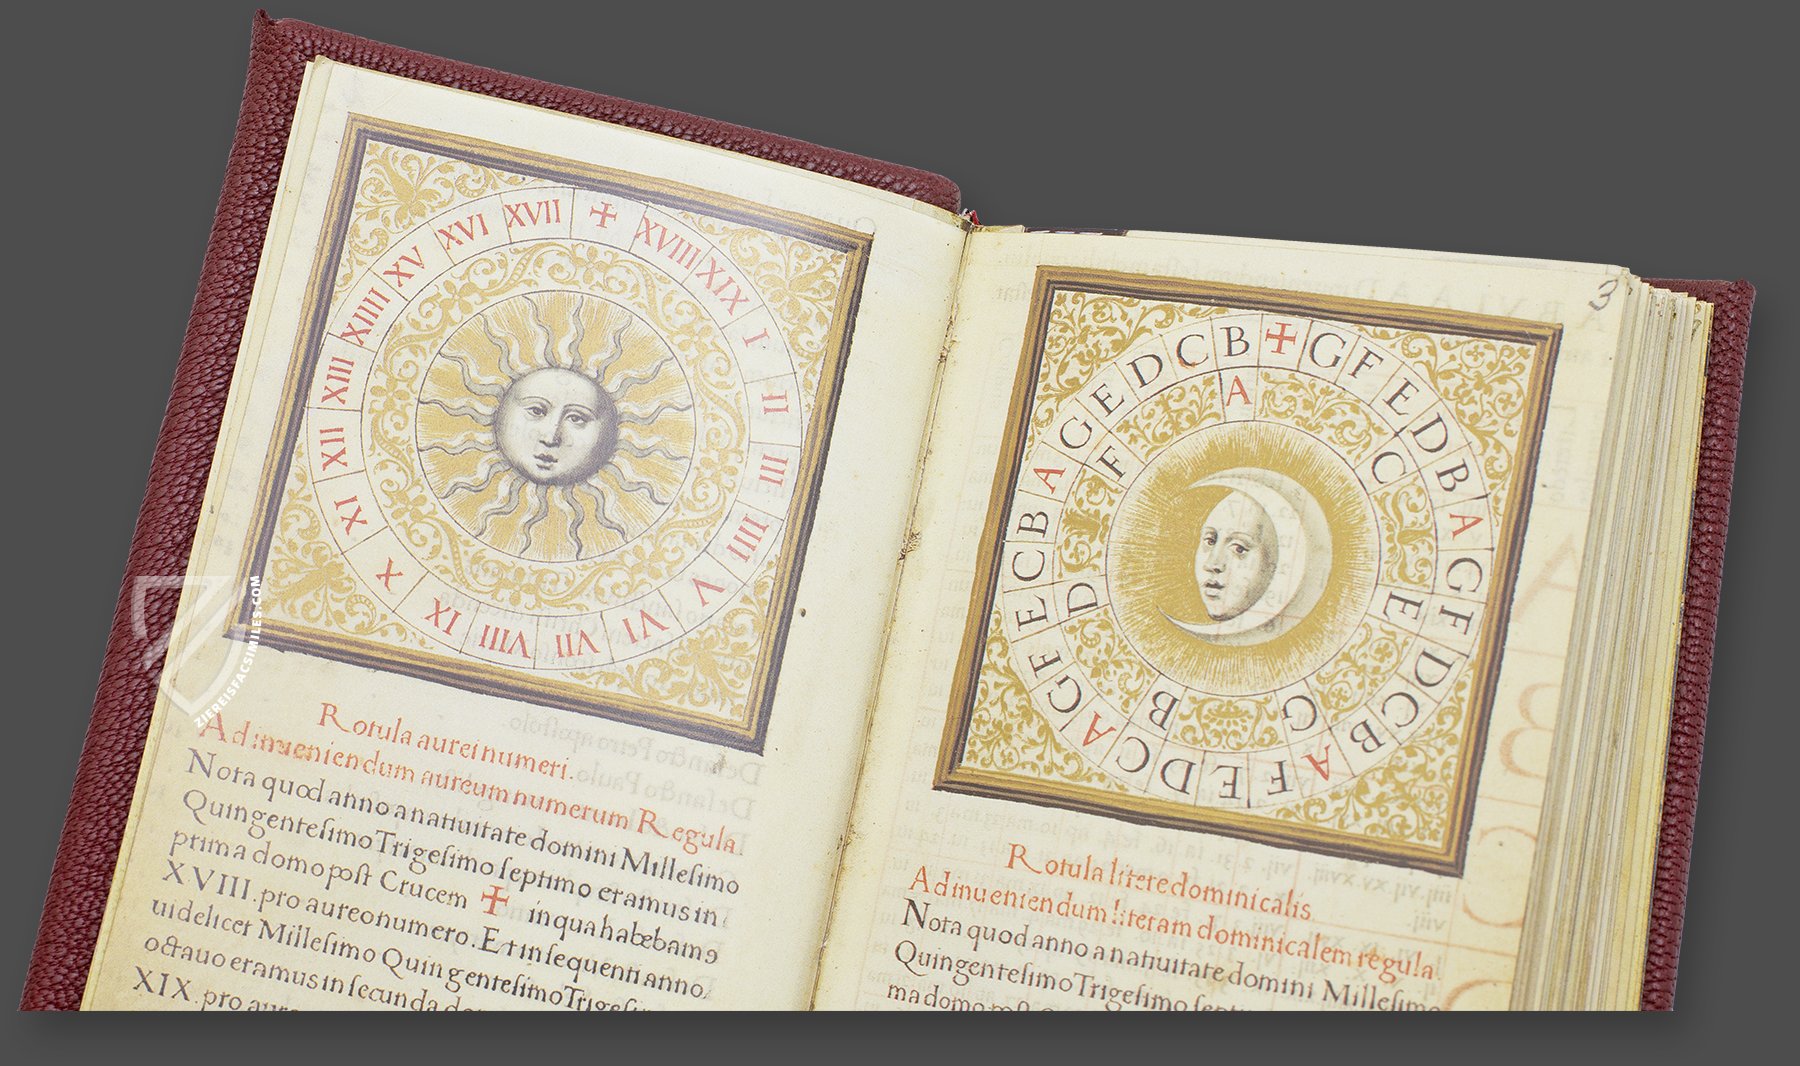 XVII + XVIII XIX I II III IIII V VI VII VIII IX X XI XII XIII XIIII XV XVI
Rotula aurei numeri.
Ad inueniendum aureum numerum Regula
Nota quod anno a natiuitate domini Millesimo
Quingentesimo Trigesimo septimo eramus in
prima domo post Crucem + in qua habebam9
XVIII. pro aureo numero. Et in sequenti anno
uidelicet Millesimo Quingentesimo Trigesi
octauo eramus in secunda do
XIX. pro aur
3
B + G F E D B A G F D C B A F E D C A G F E C B A G E D C
A C E G B D F
Rotula litere dominicalis
Ad inueniendum literam dominicalem regula.
Nota quod anno a natiuitate domini Millesimo
Quingentesimo Trigesimo septi
ma domo
ZIEREISFACSIMILES.COM